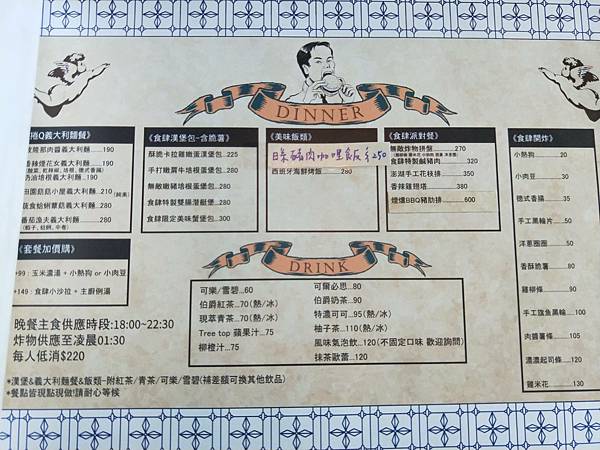 DINNER
捲Q義大利麵餐》
燒那肉醬義大利麵.....190
香辣煙花女義大利麵.....190
奶油培根義大利麵.....190
田園菇菇小屋義大利麵...210 (純素)
蔬食蛤蜊蕈菇義大利麵...280
番茄漁夫義大利麵.....280
(蝦子, 蛤蜊, 中卷)
《套餐加價購》
+99 : 玉米濃湯 + 小熱狗 or 小肉豆
+149 : 食肆小沙拉 + 主廚例湯
《食肆漢堡包-含脆薯》
酥脆卡拉雞嫩蛋漢堡包..225
手打嫩屑牛培根蛋堡包..280
無敵嫩豬培根蛋堡包....280
食肆特製雙腸潛艇堡....280
食肆限定美味蟹堡包....300
《美味飯類》
日式豬肉咖哩飯$250
西班牙海鮮烤飯.... 280
《食肆派對餐》
無敵炸物拼盤..........270
食肆特製鹹豬肉........320
澎湖手工花枝排........350
香辣雞翅塔............380
煙燻BBQ豬肋排.........600
《食肆開炸》
小熱狗 20
小肉豆 30
德式香腸 35
手工黑輪片 50
洋蔥圈圈 50
香酥脆薯 80
雞柳條 90
手工旗魚黑輪 100
肉醬薯條 100
濃濃起司條 120
雞米花 130
DRINK
可樂/雪碧...60
伯爵紅茶...70(熱/冰)
現萃青茶...70(熱/冰)
Tree top 蘋果汁...75
柳橙汁...75
可爾必思...80
伯爵奶茶...90
特濃可可...95(熱/冰)
柚子茶...110(熱/冰)
風味氣泡飲...120(不固定口味 歡迎詢問)
抹茶歐蕾...120
晚餐主食供應時段:18:00~22:30
炸物供應至凌晨01:30
每人低消$220
*漢堡&義大利麵餐&飯類-附紅茶/青茶/可樂/雪碧(補差額可換其他飲品)
*餐點皆現點現做!請耐心等候